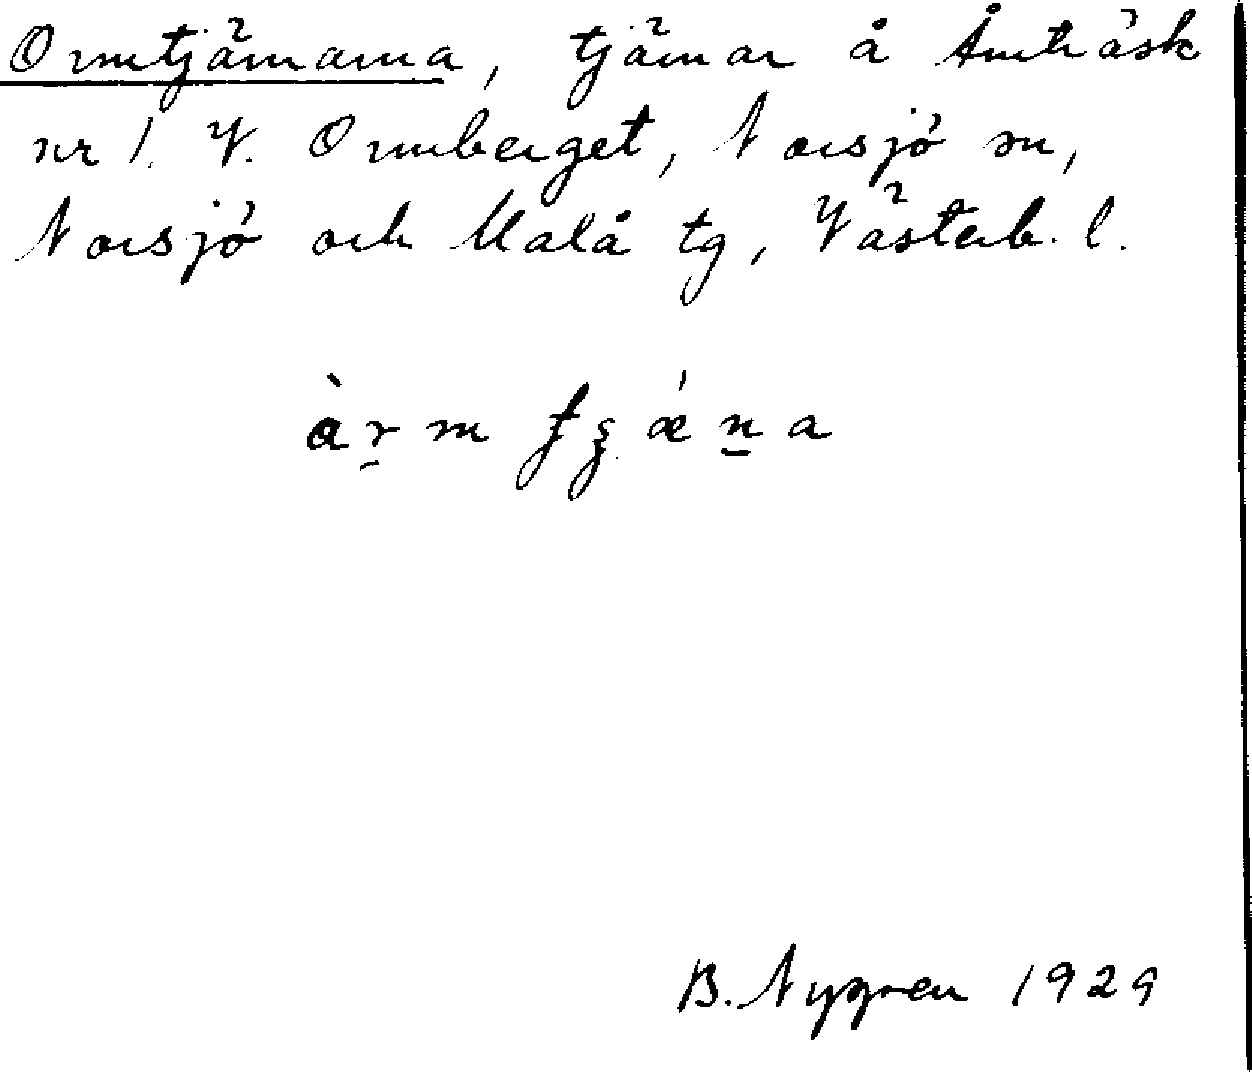 Ormtjärnarna, tjärnar å Åmträsk
nr 1. V. Ormberget, Norsjö sn,
Norsjö och Malå tg, Västerb. l.
àr̯m ʈʂǽn̲a
B. Nygren 1929